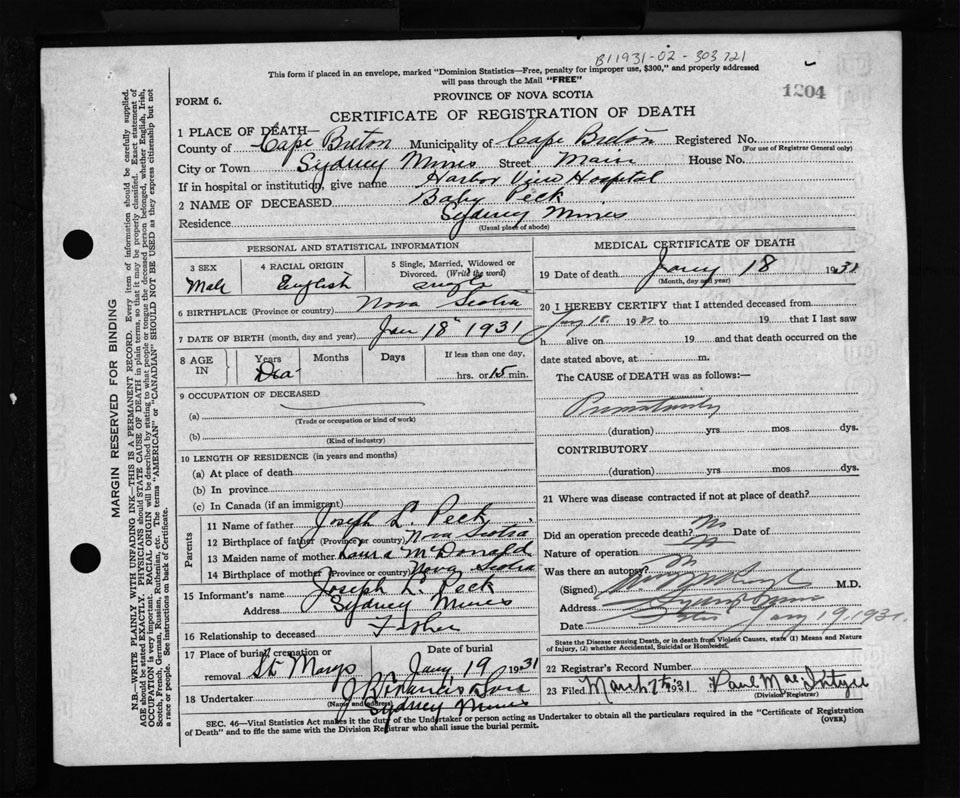 B11931-02-303721
This form if placed in an envelope, marked "Dominion Statistics—Free, penalty for improper use, $300," and properly addressed
will pass through the Mail "FREE"
1204
FORM 6.
PROVINCE OF NOVA SCOTIA
CERTIFICATE OF REGISTRATION OF DEATH
1 PLACE OF DEATH—
County of Cape Breton Municipality of Cape Breton Registered No.
(For use of Registrar General only)
City or Town Sydney Mines Street Main House No.
If in hospital or institution, give name Harbor View Hospital
2 NAME OF DECEASED Baby Peck
Residence Sydney Mines
(Usual place of abode)
PERSONAL AND STATISTICAL INFORMATION
3 SEX 4 RACIAL ORIGIN 5 Single, Married, Widowed or Divorced. (Write the word)
Male English single
6 BIRTHPLACE (Province or country) Nova Scotia
7 DATE OF BIRTH (month, day and year) Jan 18 1931
8 AGE IN Years Months Days If less than one day,
hrs. or 15 min.
9 OCCUPATION OF DECEASED
(a)
(Trade or occupation or kind of work)
(b)
(Kind of industry)
10 LENGTH OF RESIDENCE (in years and months)
(a) At place of death
(b) In province
(c) In Canada (if an immigrant)
Parents
11 Name of father Joseph L. Peck
12 Birthplace of father (Province or country) Nova Scotia
13 Maiden name of mother Laura McDonald
14 Birthplace of mother (Province or country) Nova Scotia
15 Informant's name Joseph L. Peck
Address Sydney Mines
16 Relationship to deceased Father
17 Place of burial, cremation or removal St. Marys Date of burial Jany 19 1931
18 Undertaker
(Name and address) Sydney Mines
MEDICAL CERTIFICATE OF DEATH
19 Date of death Jany 18 1931
(Month, day and year)
20 I HEREBY CERTIFY that I attended deceased from
Jany 18 1931 to 19 that I last saw
h alive on 19 and that death occurred on the
date stated above, at m.
The CAUSE of DEATH was as follows:—
Prematurity
(duration) yrs mos dys.
CONTRIBUTORY
(duration) yrs mos dys.
21 Where was disease contracted if not at place of death?
Did an operation precede death? No Date of
Nature of operation
Was there an autopsy? No
(Signed) M.D.
Address
Date Jany 19, 1931.
State the Disease causing Death, or in death from Violent Causes, state (1) Means and Nature
of Injury, (2) whether Accidental, Suicidal or Homicidal.
22 Registrar's Record Number
23 Filed March 7th 1931 Paul MacIntyre
(Division Registrar)
SEC. 46—Vital Statistics Act makes it the duty of the Undertaker or person acting as Undertaker to obtain all the particulars required in the "Certificate of Registration
of Death" and to file the same with the Division Registrar who shall issue the burial permit.
(OVER)
MARGIN RESERVED FOR BINDING
N.B.—WRITE PLAINLY WITH UNFADING INK—THIS IS A PERMANENT RECORD. Every item of information should be carefully supplied.
AGE should be stated EXACTLY. PHYSICIANS should STATE CAUSE OF DEATH in plain terms, so that it may be properly classified. Exact statement of
OCCUPATION is very important. RACIAL ORIGIN will be described by stating to what people or tongue the deceased person belonged, whether English, Irish,
Scotch, French, German, Russian, Ruthenian, etc. The terms "AMERICAN" or "CANADIAN" SHOULD NOT BE USED as they express citizenship but not
a race or people. See instructions on back of Certificate.